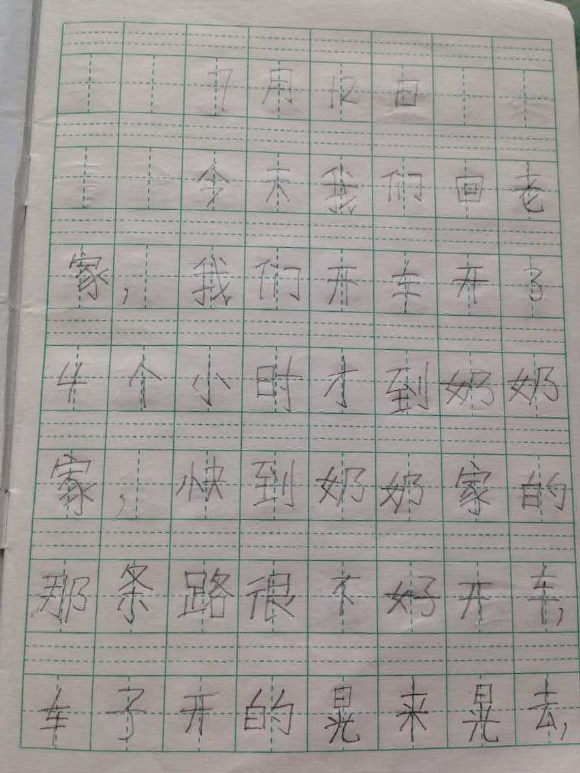 7月12日
今天我们回老
家，我们开车开了
4个小时才到奶奶
家，快到奶奶家的
那条路很不好开车，
车子开的晃来晃去，